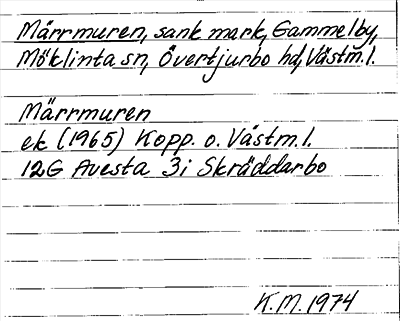 Märrmuren, sank mark, Gammelby,
Möklinta sn, Övertjurbo hd, Västm. l.
Märrmuren
ek (1965) Kopp. o. Västm. l.
12G Avesta 3i Skräddarbo
K.M. 1974